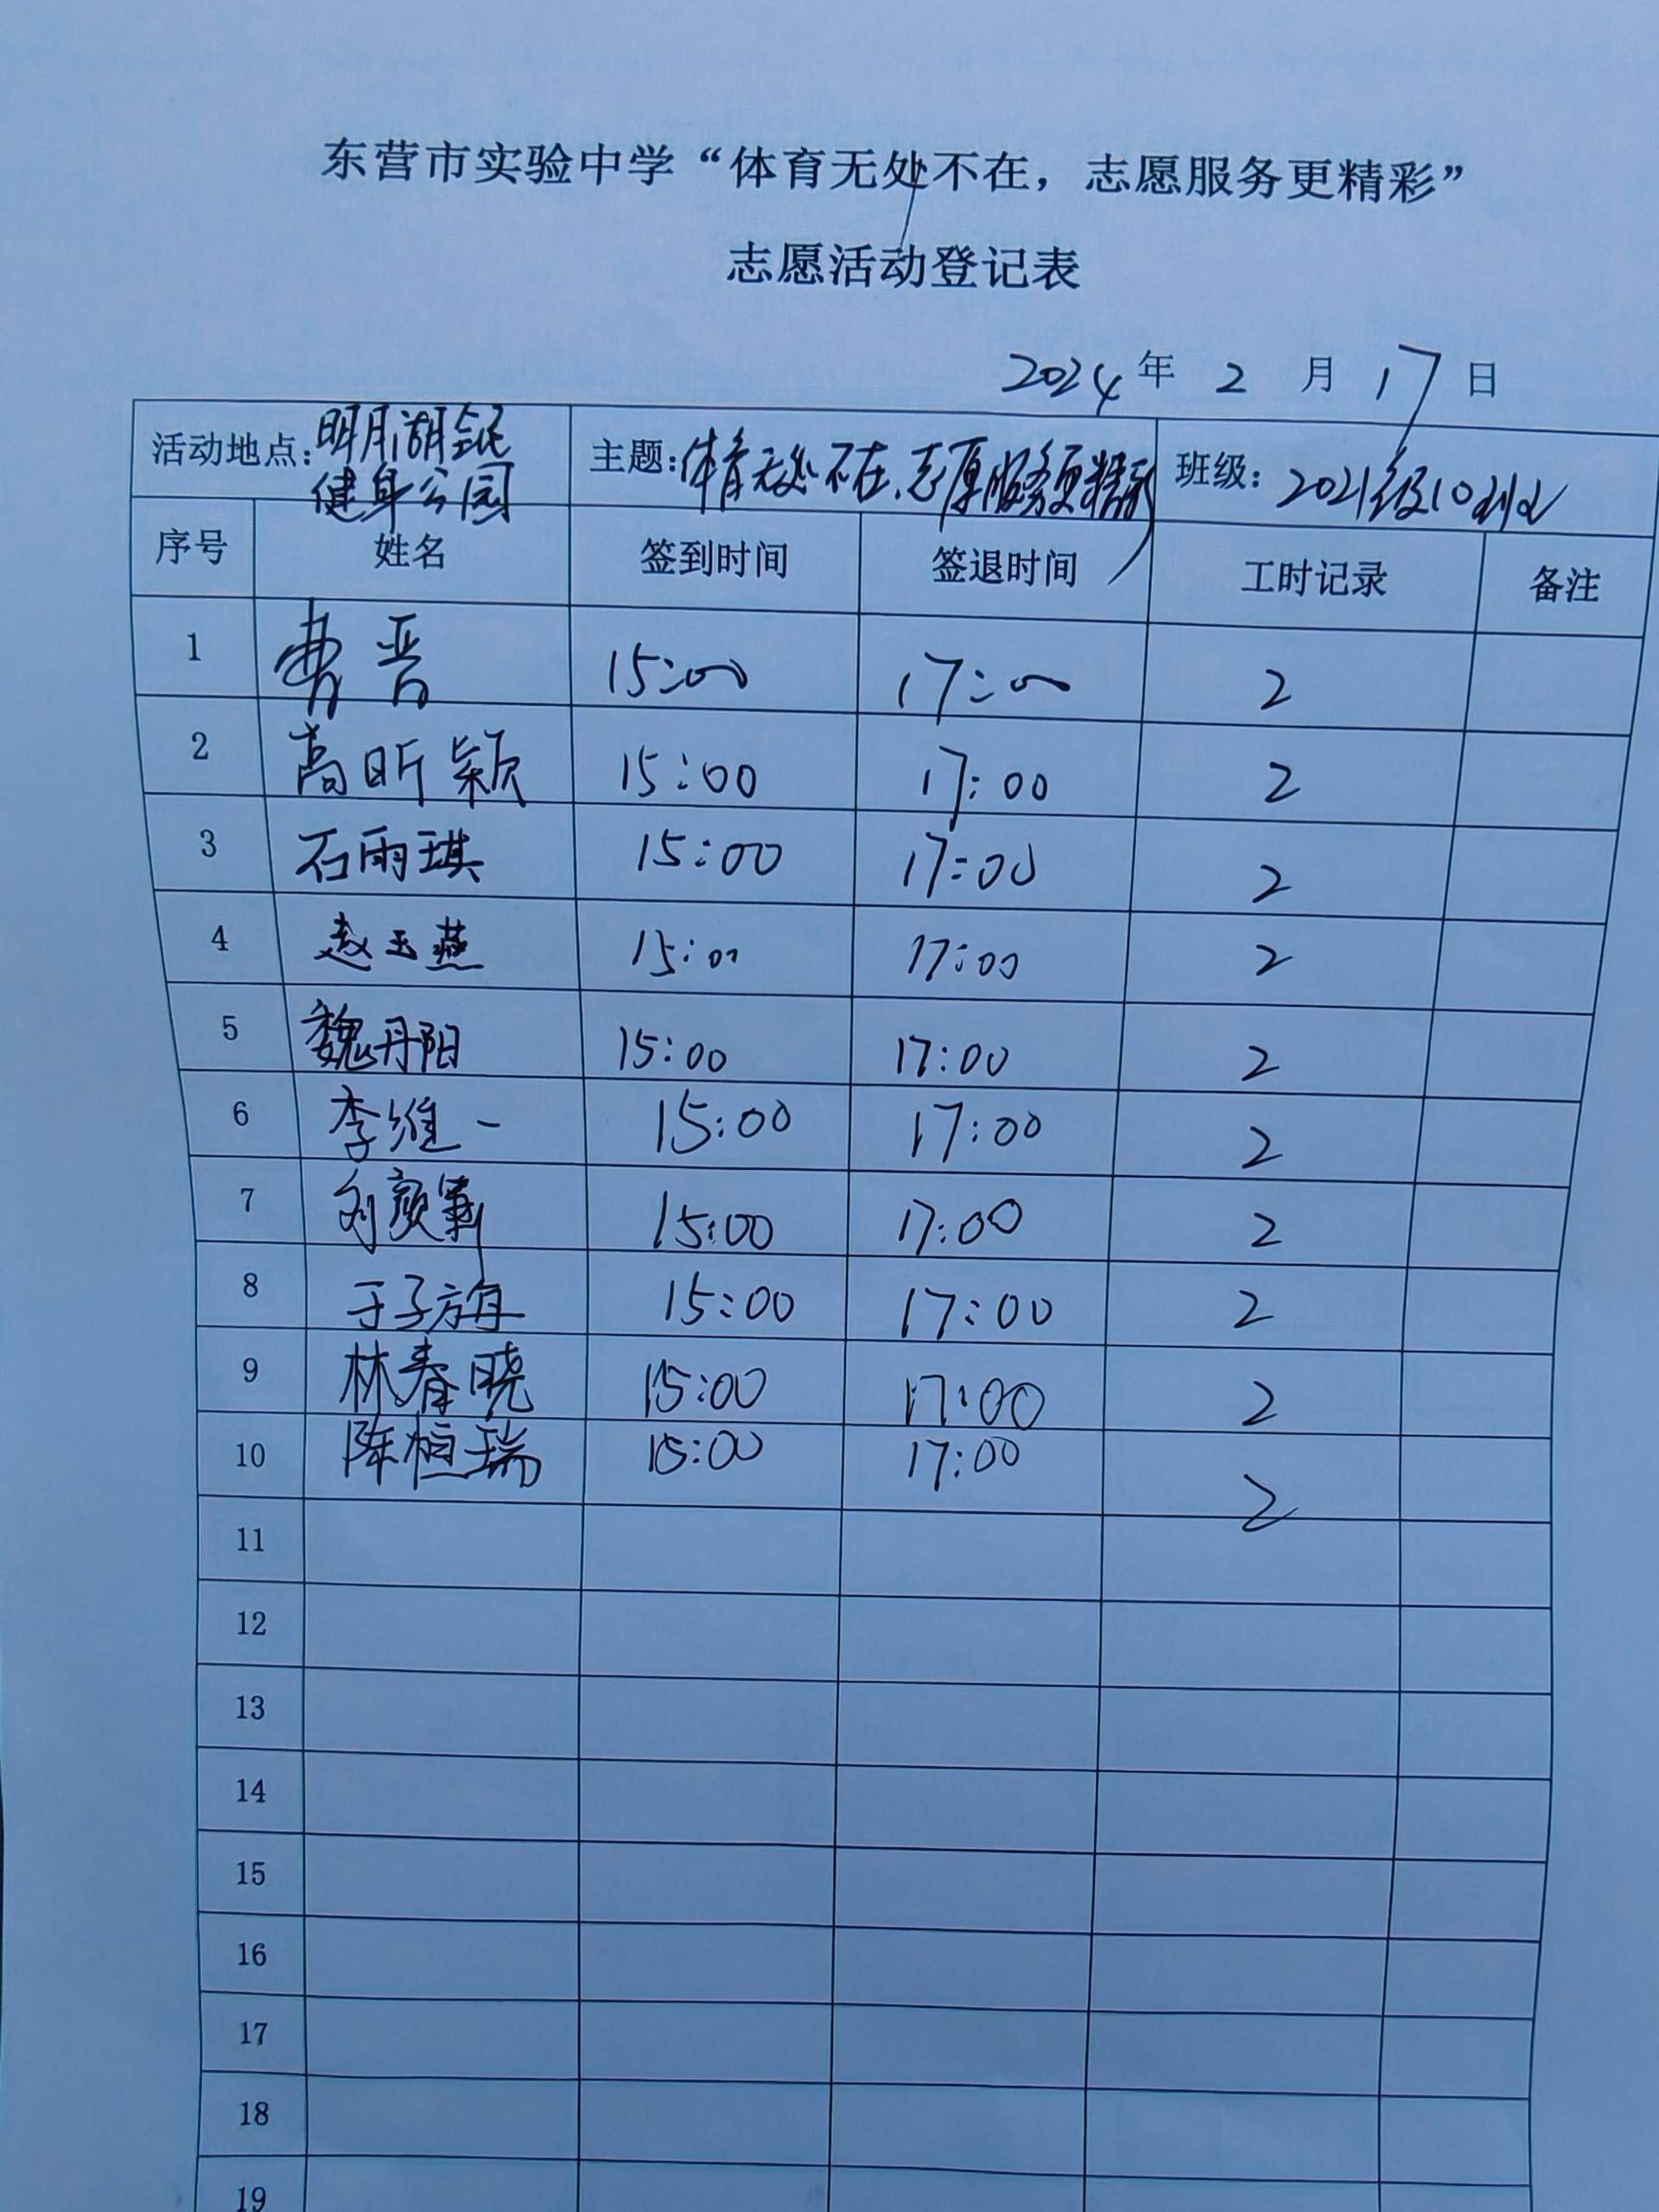 东营市实验中学“体育无处不在，志愿服务更精彩”
志愿活动登记表
2024 年 2 月 17 日
活动地点：明月湖全民健身公园 主题：体育无处不在、志愿服务更精彩 班级：2021级10班
序号 姓名 签到时间 签退时间 工时记录 备注
1 曹晋 15:00 17:00 2
2 高昕颖 15:00 17:00 2
3 石雨琪 15:00 17:00 2
4 赵玉燕 15:00 17:00 2
5 魏丹阳 15:00 17:00 2
6 李维一 15:00 17:00 2
7 刘颜 15:00 17:00 2
8 于子 15:00 17:00 2
9 林春晓 15:00 17:00 2
10 陈恒瑞 15:00 17:00 2
11
12
13
14
15
16
17
18
19